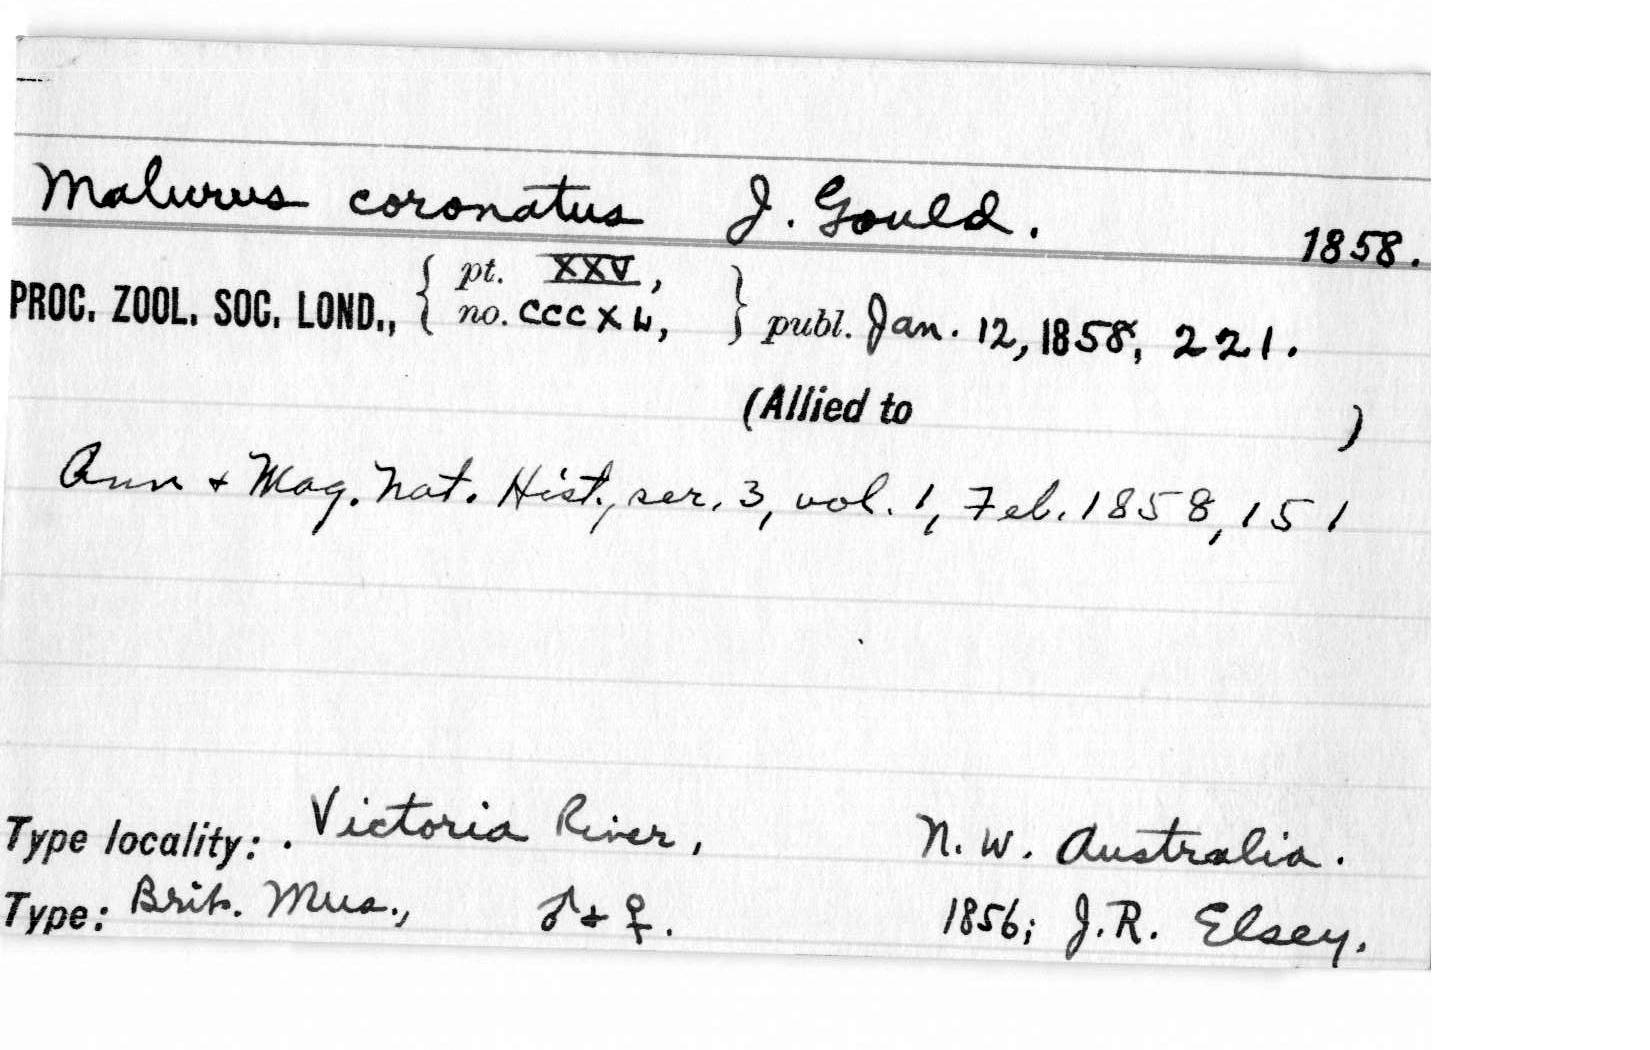 Malurus coronatus J. Gould. 1858.
PROC. ZOOL. SOC. LOND., { pt. XXV, no. CCCXL, } publ. Jan. 12, 1858, 221.
(Allied to )
Ann + Mag. Nat. Hist., ser. 3, vol. 1, Feb. 1858, 151
Type locality: . Victoria River, N. W. Australia.
Type: Brit. Mus., ♂ + ♀. 1856; J.R. Elsey.